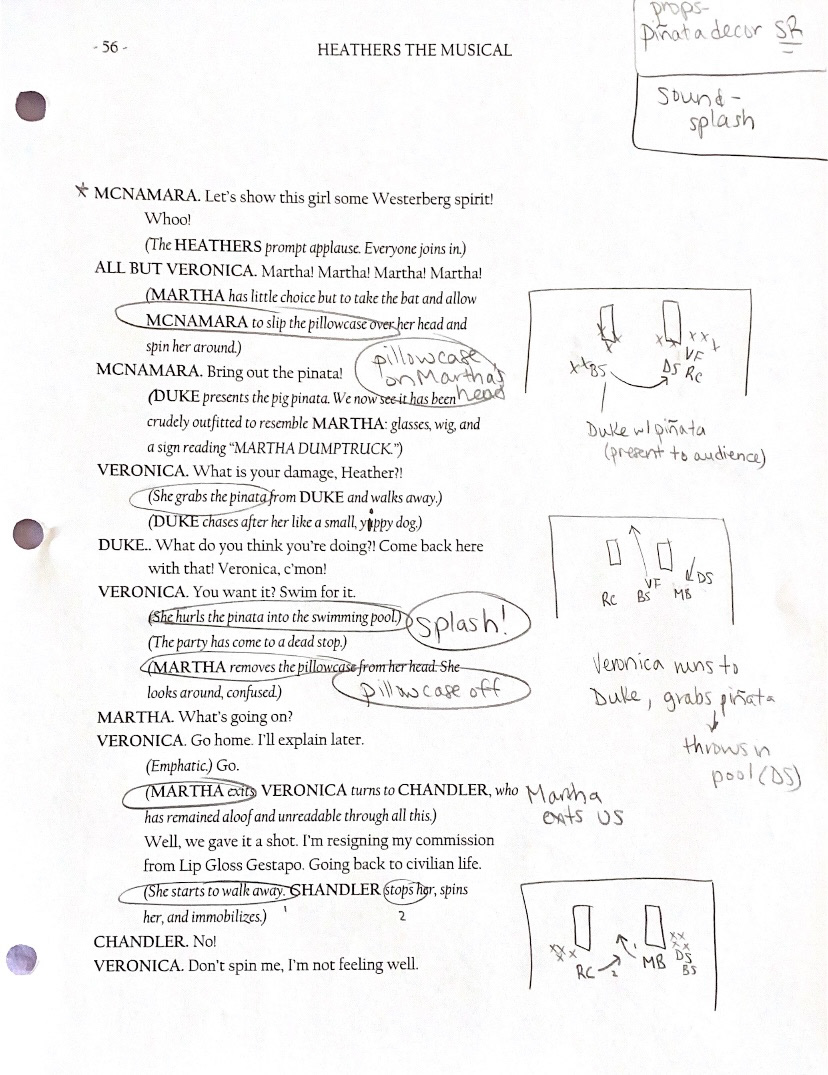 props-
piñata decor SR
Sound-
splash
- 56 - HEATHERS THE MUSICAL
MCNAMARA. Let's show this girl some Westerberg spirit!
Whoo!
(The HEATHERS prompt applause. Everyone joins in.)
ALL BUT VERONICA. Martha! Martha! Martha! Martha!
(MARTHA has little choice but to take the bat and allow
MCNAMARA to slip the pillowcase over her head and
spin her around.)
pillowcase
on Martha's
head
MCNAMARA. Bring out the pinata!
(DUKE presents the pig pinata. We now see it has been
crudely outfitted to resemble MARTHA: glasses, wig, and
a sign reading "MARTHA DUMPTRUCK.")
x x BS
x x
x x x
VF
DS RC
Duke w/ piñata
(present to audience)
VERONICA. What is your damage, Heather?!
(She grabs the pinata from DUKE and walks away.)
(DUKE chases after her like a small, yippy dog.)
DUKE.. What do you think you're doing?! Come back here
with that! Veronica, c'mon!
VERONICA. You want it? Swim for it.
(She hurls the pinata into the swimming pool.)
splash!
(The party has come to a dead stop.)
(MARTHA removes the pillowcase from her head. She
looks around, confused.)
pillowcase off
RC BS VF MB DS
Veronica runs to
Duke, grabs piñata
throws in
pool (DS)
MARTHA. What's going on?
VERONICA. Go home. I'll explain later.
(Emphatic.) Go.
(MARTHA exits VERONICA turns to CHANDLER, who
has remained aloof and unreadable through all this.)
Martha
exits US
Well, we gave it a shot. I'm resigning my commission
from Lip Gloss Gestapo. Going back to civilian life.
(She starts to walk away. CHANDLER stops her, spins
her, and immobilizes.) 1 2
CHANDLER. No!
VERONICA. Don't spin me, I'm not feeling well.
x x x
RC 2
1
MB
x x
x x
DS
BS